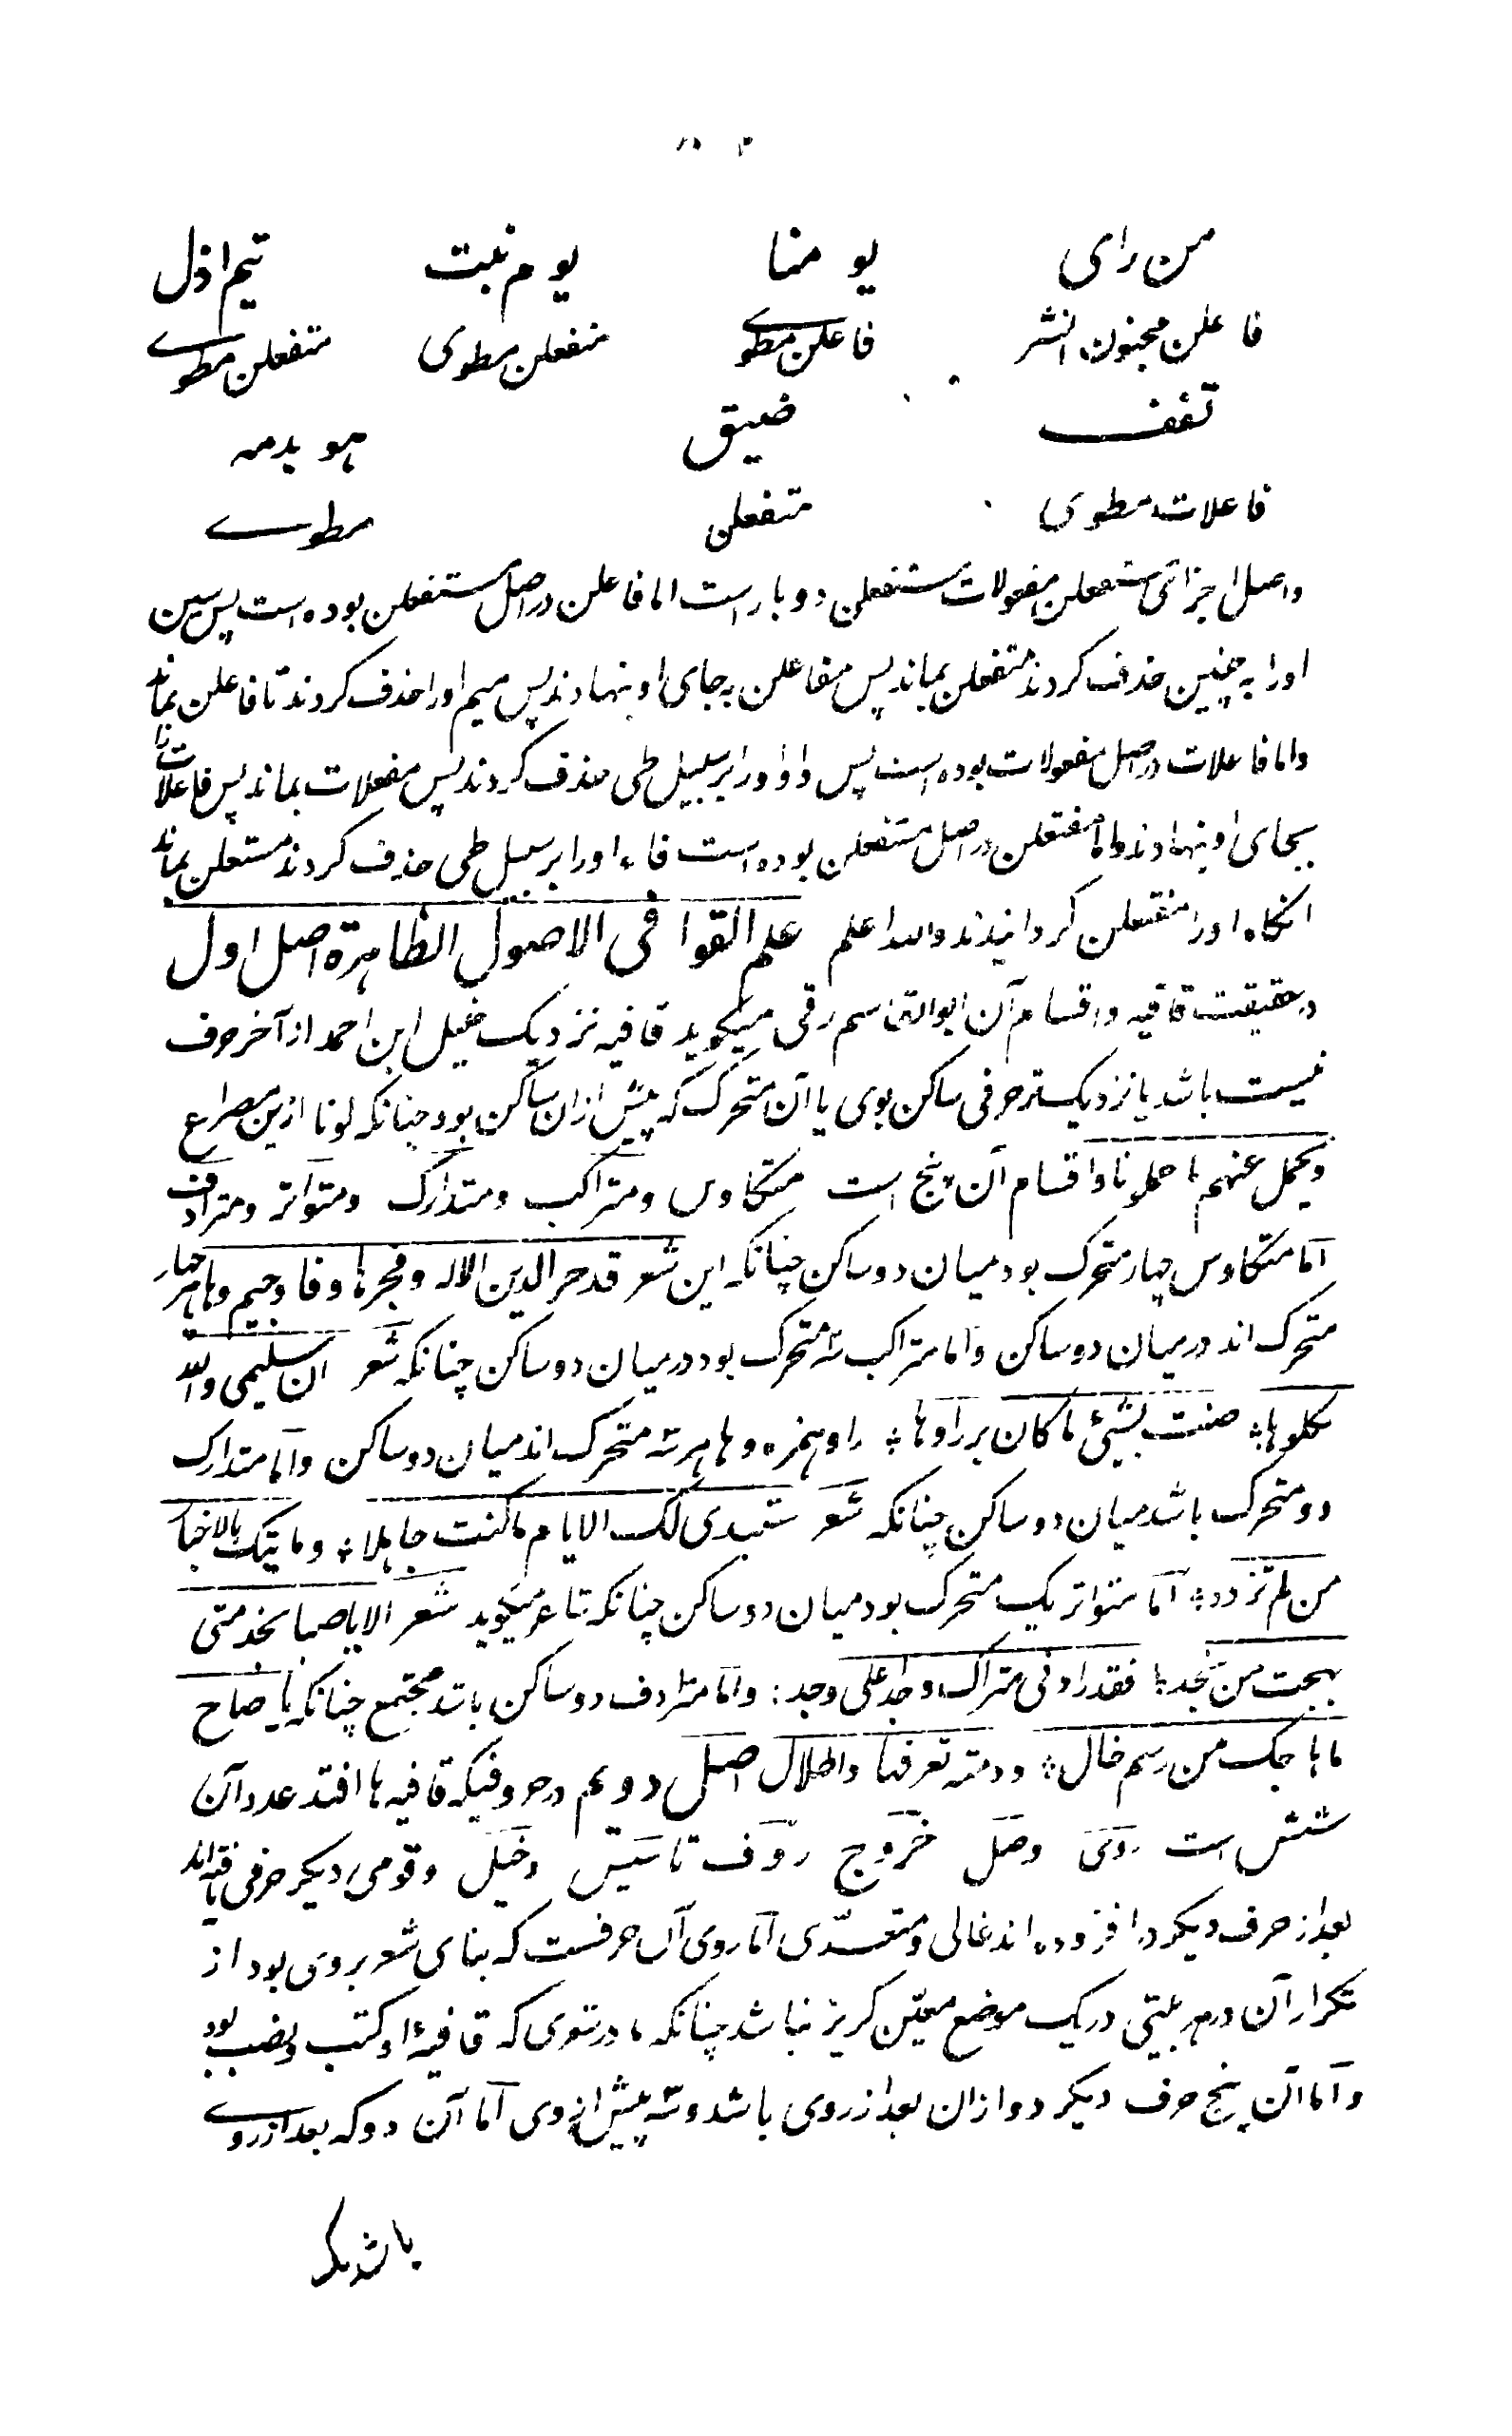 من رای یو منا یوم نبت تیم اذل
فاعلن مخبون النشر فاعلن مطوے منفعلن مطوی متفعلن مطوے
تفف ضیق هو بدمه
فاعلات مطوی متفعلن مطوے
واصل اجزائی مستفعلن مفعولات مستفعلن دوبار است اما فاعلن در اصل مستفعلن بوده است پس سین
اورا به چنین حذف کردند متفعلن بماند پس مفاعلن به جای او بنهادند پس میم اورا حذف کردند تا فاعلن بماند
واما فاعلات در اصل مفعولات بوده است پس واو را بر سبیل طی حذف کردند پس مفعلات بماند پس فاعلات را
بجای او بنهادند واما مفتعلن در اصل مستفعلن بوده است فاء اورا بر سبیل طی حذف کردند مستعلن بماند
انکاه اورا مفتعلن کردانیدند والله اعلم علم القوا فی الاصول الظاهرة اصل اول
در حقیقت قافیه و اقسام آن ابوالقاسم رقی میکوید قافیه نزدیک خلیل ابن احمد از آخر حرف
نیست باشد یا نزدیکتر حرفی ساکن بوی یا آن متحرک که پیش ازان ساکن بود چنانکه لونا ازین مصراع
ویحمل عنهم ما حملونا و اقسام آن پنج است متکاوس ومتراکب ومتدارک ومتواتر ومترادف
اما متکاوس چهار متحرک بود میان دو ساکن چنانکه این شعر قد جر الدین الاله وفجرها وفا وجیم وها هر چهار
متحرک اند در میان دو ساکن واما متراکب سه متحرک بود در میان دو ساکن چنانکه شعر ان سلیمی والله
یکلوها ضنت بشیئ ما کان یرزاوها را وهمزه وها هر سه متحرک اند میان دو ساکن واما متدارک
دو متحرک باشد میان دو ساکن چنانکه شعر ستبدی لک الایام ما کنت جاهلا ویاتیک بالاخبا
من لم تزود اما متواتر یک متحرک بود میان دو ساکن چنانکه شاعر میکوید شعر الا یا صبا نجد متی
هجت من نجد فقد زادنی مسراک وجدا علی وجد واما مترادف دو ساکن باشد مجتمع چنانکه یا صاح
ما هاجک من رسم خال ودمنه تعرفها واطلال اصل دویم در حروفیکه قافیه ها افتد عدد آن
شش است روی وصل خروج ردف تاسیس دخیل وقومی دیکر حرفی یافته اند
بعد از حرف دیکر در افزوده اند غالی و متعدّی اما روی آن حرفست که بنای شعر بروی بود از
تکرار آن در هر بیتی در یک موضع معیّن کریز نباشد چنانکه با در شعری که قافیهٔ او کتب ونصب بود
واما آن پنج حرف دیکر دو ازان بعد از روی باشد وسه پیش از وی اما آن دو که بعد از روے
باشد یکی